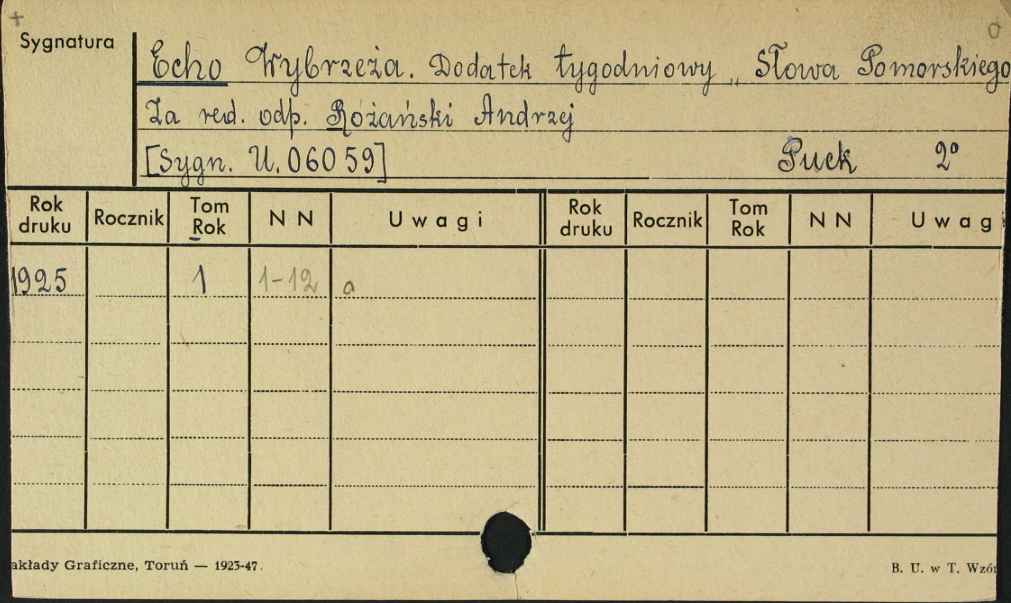 +
0
Sygnatura
Echo Wybrzeża. Dodatek tygodniowy „Słowa Pomorskiego
Za red. odp. Różański Andrzej
[Sygn. U. 06059] Puck 2°
Rok druku Rocznik Tom Rok N N Uwagi Rok druku Rocznik Tom Rok N N Uwagi
1925 1 1-12 a
akłady Graficzne, Toruń — 1923-47. B. U. w T. Wzór